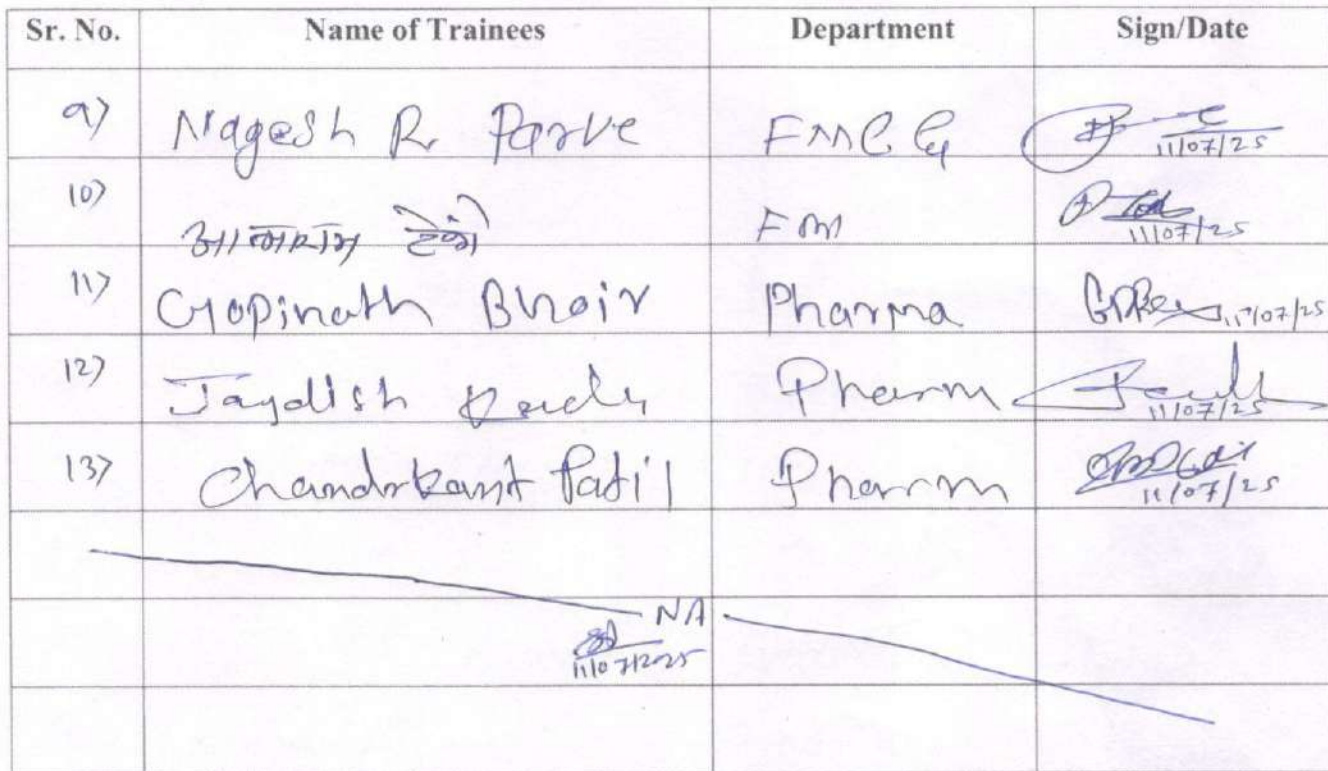 Sr. No. Name of Trainees Department Sign/Date
9) Nagesh R Parve FMCG 11/07/25
10) FM 11/07/25
11) Gopinath Bhoir Pharma 11/07/25
12) Jaydish Pharm 11/07/25
13) Chandrkant Patil Pharm 11/07/25
NA
11/07/2025